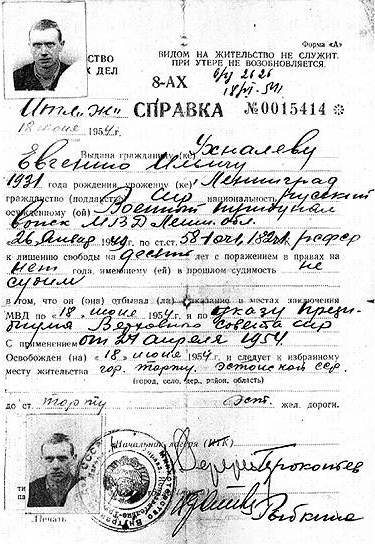 СТВО
Х ДЕЛ
Форма «А»
ВИДОМ НА ЖИТЕЛЬСТВО НЕ СЛУЖИТ.
ПРИ УТЕРЕ НЕ ВОЗОБНОВЛЯЕТСЯ.
8-АХ
18/VI-54
СПРАВКА №0015414 *
18 июня 1954 г.
Выдана гражданину (ке) Ухналеву
Евгению Ильичу
1931 года рождения, уроженцу (ке) Ленинград
гражданство (подданство) национальность русский
осужденному (ой) Военный трибунал
войск МВД Ленин. обл.
26 январ по ст.ст. рсфср
к лишению свободы на десять лет с поражением в правах на
нет года, имеющему (ей) в прошлом судимость не
судим
в том, что он (она) отбывал (ла) наказание в местах заключения
МВД по «18» июня 1954 г. и по указу прези-
диума Верховного совета ссср
С применением от 24 апреля 1954
Освобожден (на) «18» июня 1954 г. и следует к избранному
месту жительства гор. Тарту. Эстонской сср.
(город, село, дер., район, область)
до ст. Тарту Эст. жел. дороги.
Начальник лагеря (ИТК)
Прокопьев
Печать
Рыбкина